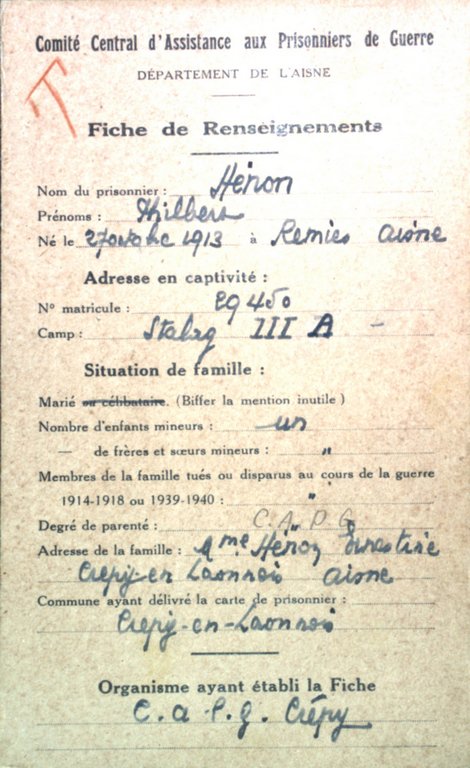 Comité Central d'Assistance aux Prisonniers de Guerre
DÉPARTEMENT DE L'AISNE
T
Fiche de Renseignements
Nom du prisonnier : Héron
Prénoms :
Né le 27 octobre 1913 à Remies Aisne
Adresse en captivité :
N° matricule : 89450
Camp : Stalag III A -
Situation de famille :
Marié ou célibataire. (Biffer la mention inutile)
Nombre d'enfants mineurs : un
— de frères et sœurs mineurs : "
Membres de la famille tués ou disparus au cours de la guerre
1914-1918 ou 1939-1940 : "
Degré de parenté : C. A. P. G.
Adresse de la famille : Mme Héron
Crépy-en Laonnois Aisne
Commune ayant délivré la carte de prisonnier :
Crépy-en-Laonnois
Organisme ayant établi la Fiche
C. a. P. g. Crépy